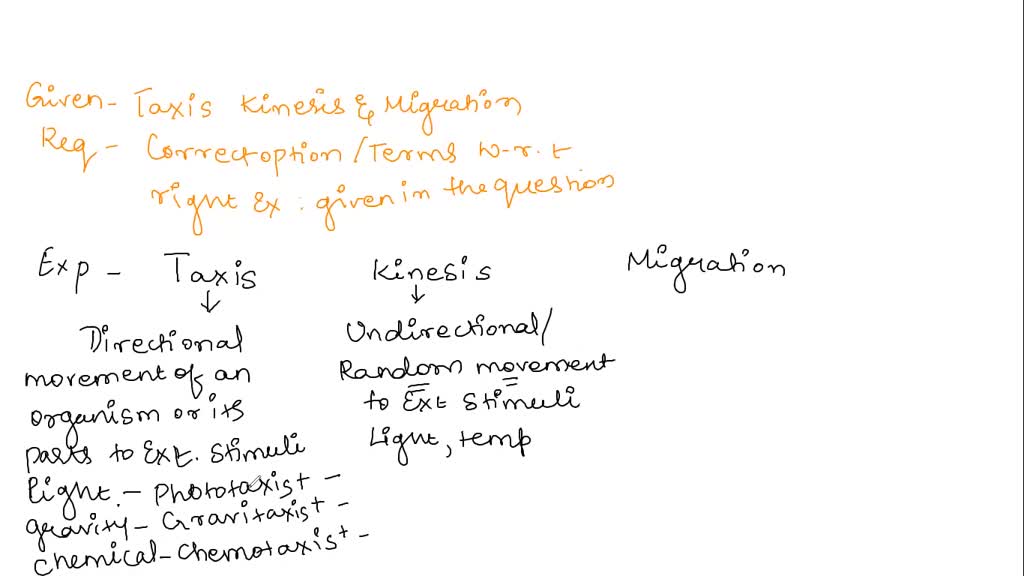 Given - Taxis Kinesis & Migration
Req - Correctoption / Terms w.r.t
right Ex : given in the question
Exp - Taxis Kinesis Migration
↓ ↓
Directional
movement of an
organism or its
parts to Ext. Stimuli
light - Phototaxis + -
gravity - Gravitaxis + -
chemical - Chemotaxis + -
Undirectional/
Random movement
to Ext Stimuli
Light, temp